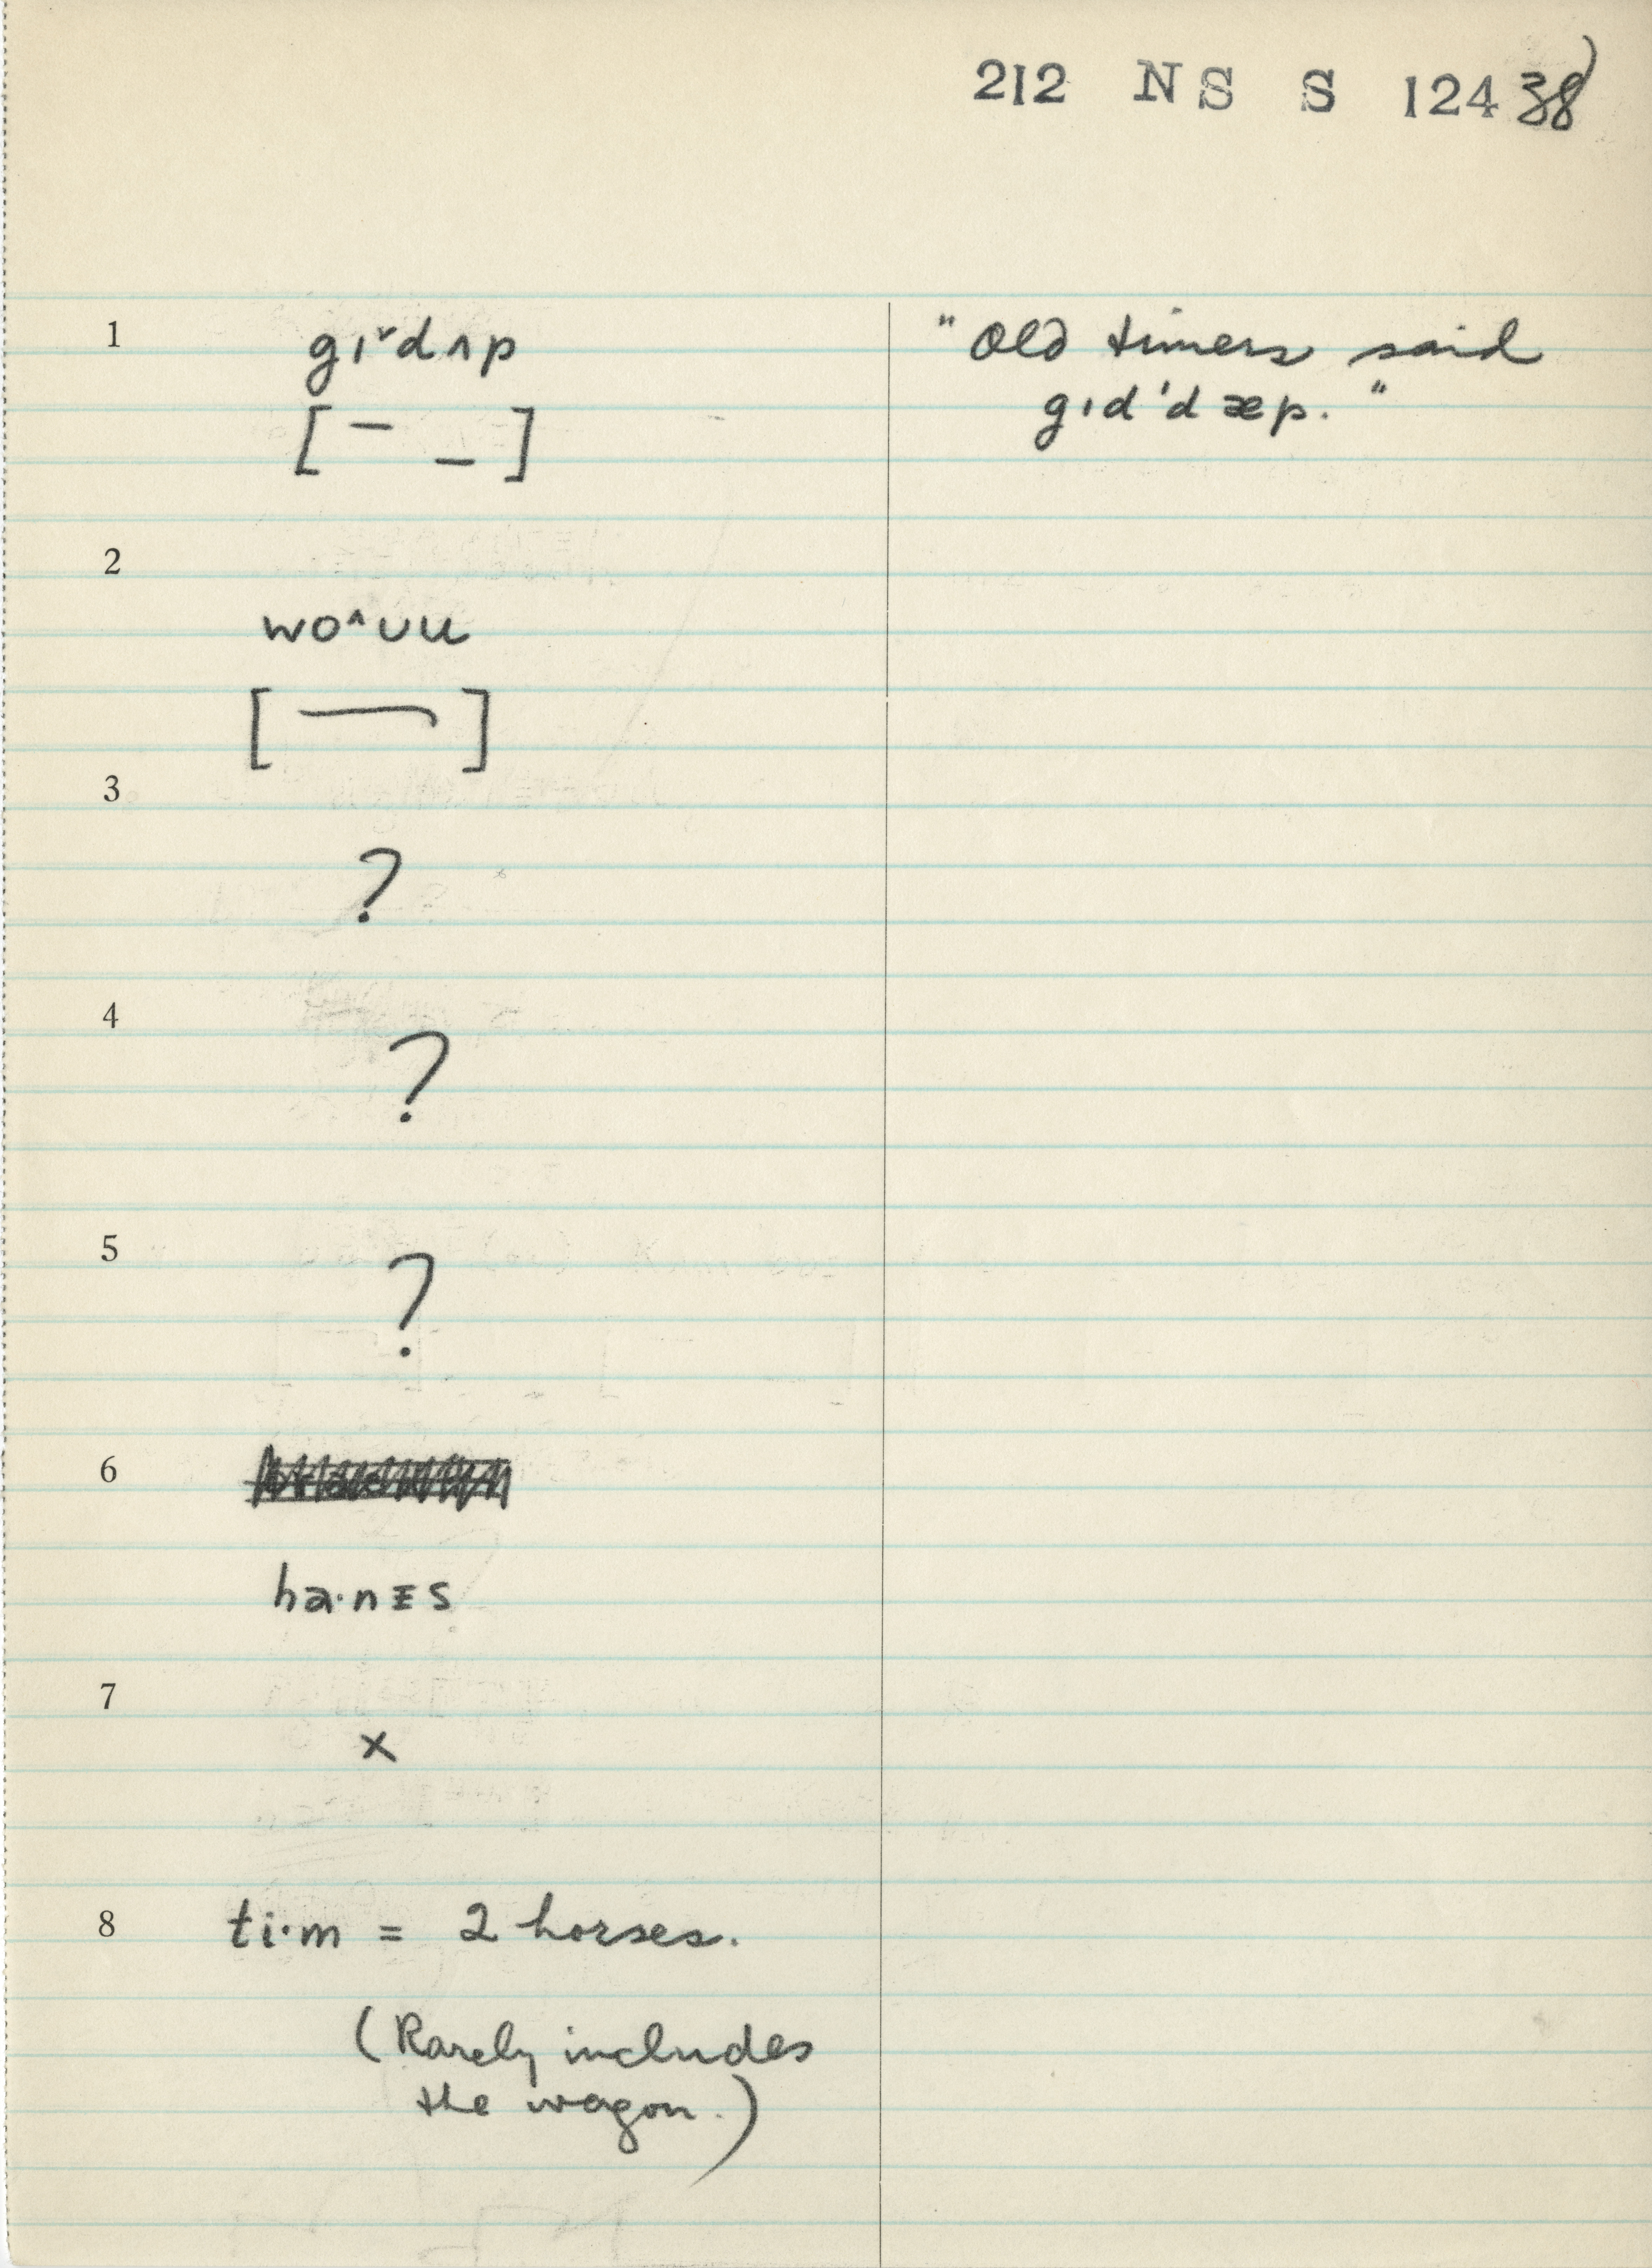 212 NS S 124 38)
1 gɪˇdʌp "Old timers said
gɪd'dæp."
[ ¯ _ ]
2
wo^ʊu
[ ]
3
?
4
?
5
?
6
ha·nɪs
7
x
8 ti·m = 2 horses.
(Rarely includes
the wagon.)